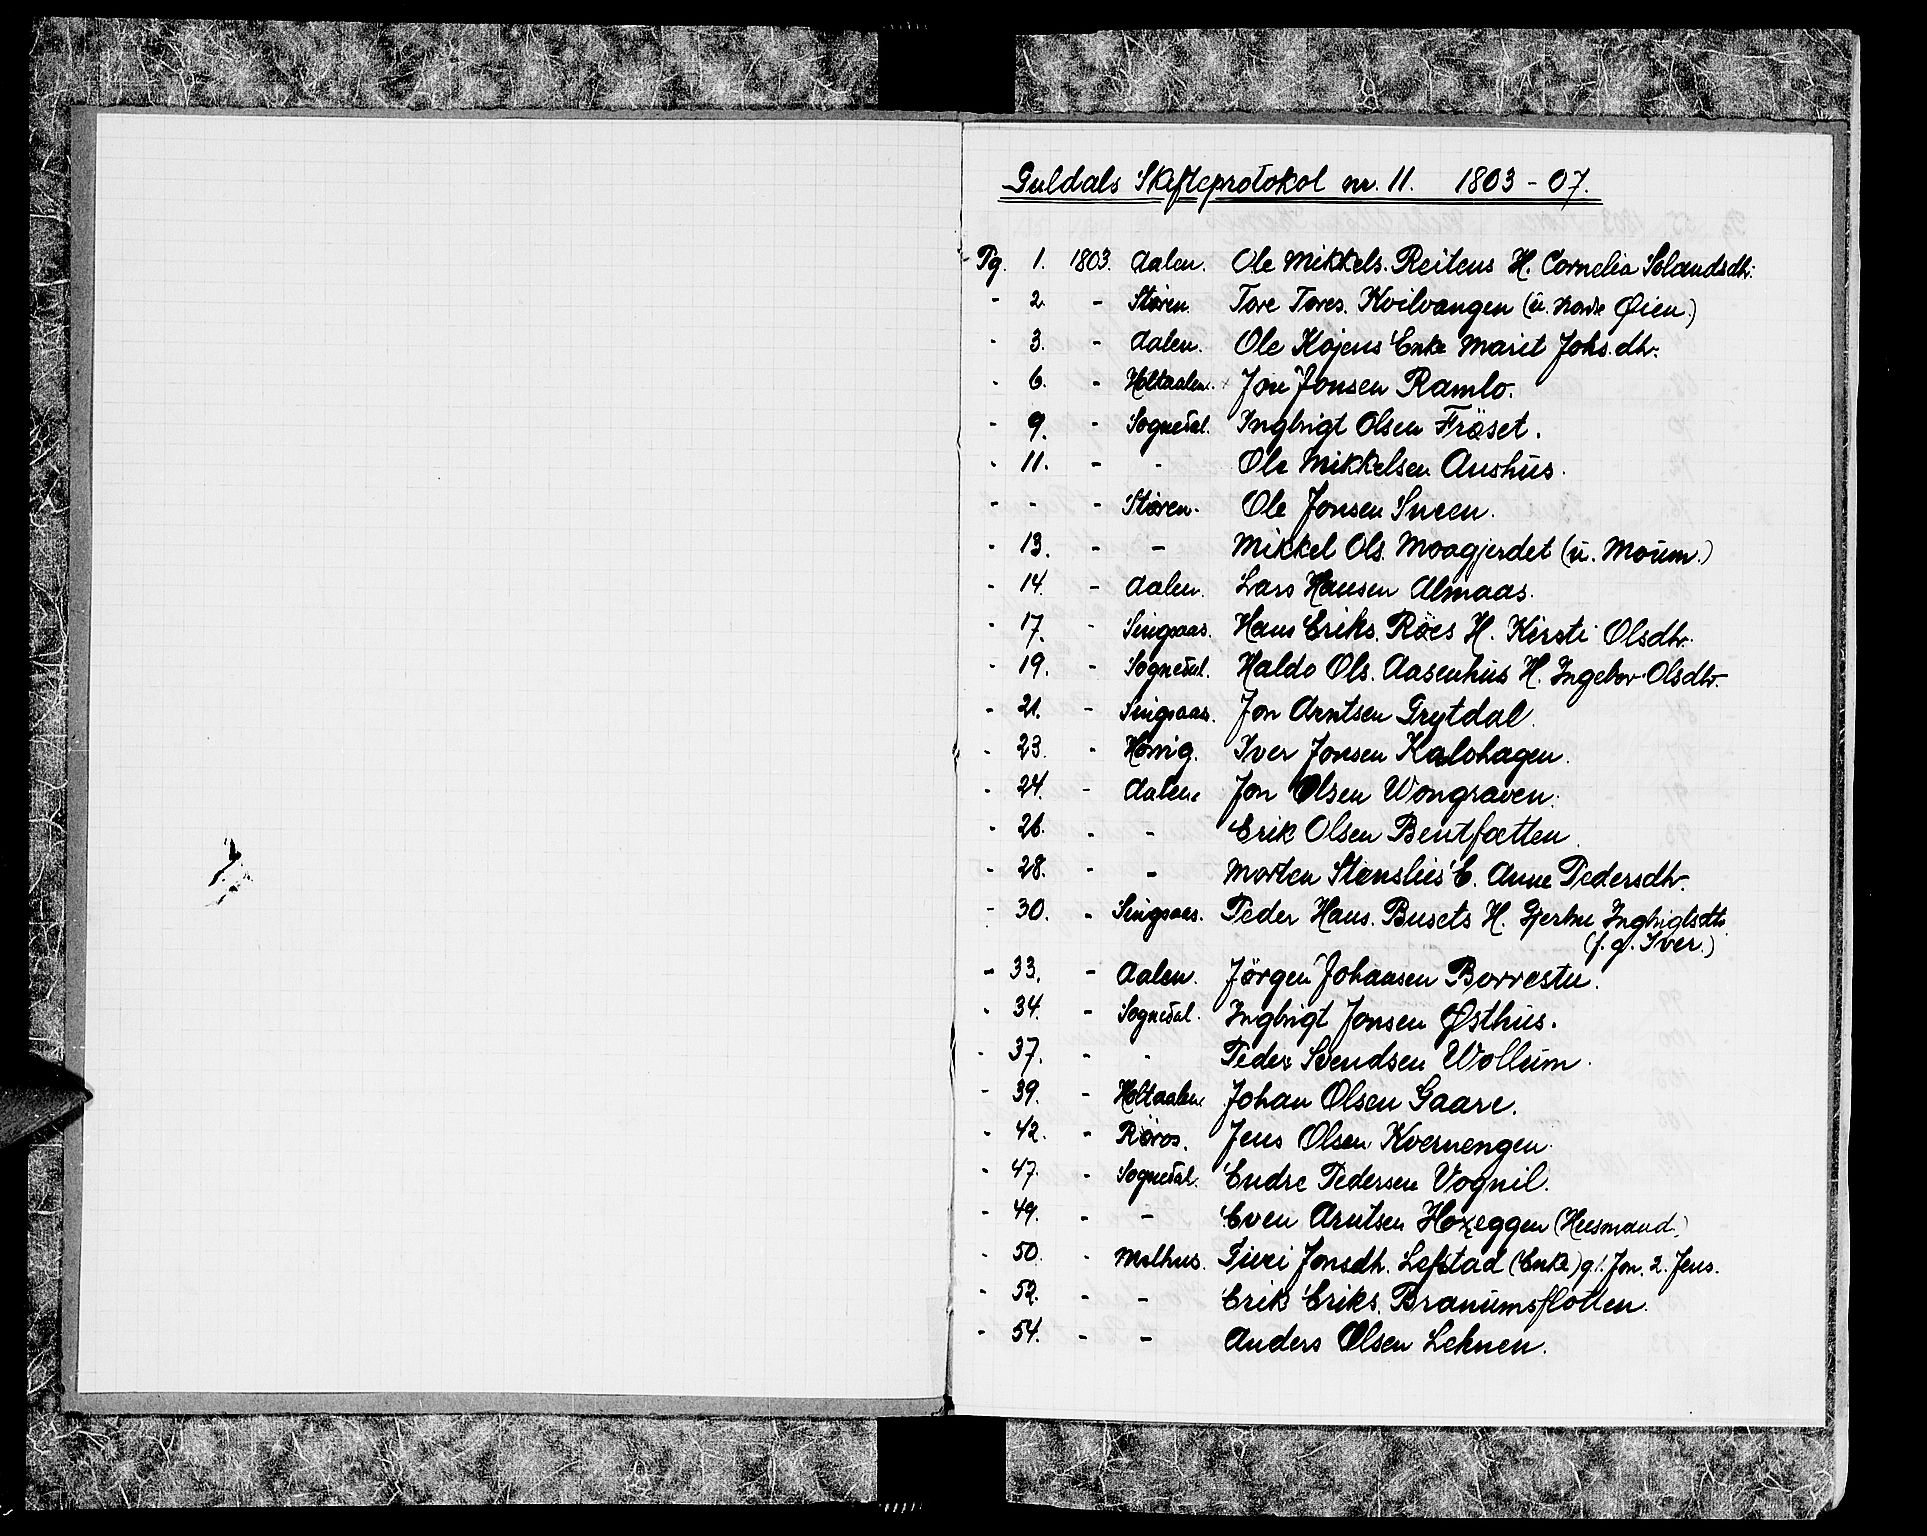 Guldals Skifteprotokol nr. 11. 1803 - 07.
Pg. 1. 1803. Aalen. Ole Mikkels. Reitens H. Cornelia Solandsdtr.
- 2. - Støren. Tore Tores. Kvilvangen (u. nordre Øien.)
- 3. - Aalen. Ole Kojens Enke Marit Johs.dtr.
- 6. - Holtaalen. Jon Jonsen Ramlo.
- 9. - Sognedal. Ingbrigt Olsen Fröset.
- 11. - - Ole Mikkelsen Aushus.
- - - Støren. Ole Jonsen Sneen.
- 13. - - Mikkel Ols. Moagjerdet (u. Moum.)
- 14. - Aalen. Lars Hansen Almaas.
- 17. - Singsaas. Hans Eriks. Röes H. Kirsti Olsdtr.
- 19. - Sognedal. Haldo Ols. Aasenhus H. Ingebor Olsdtr.
- 21. - Singsaas. Jon Arntsen Grytdal.
- 23. - Hønig. Iver Jonsen Kalshagen.
- 24. - Aalen. Jon Olsen Wongraven.
- 26. - - Erik Olsen Bentfætten.
- 28. - - Morten Stenslies E. Anne Pedersdtr.
- 30. - Singsaas. Peder Hans. Busets H. Gjertru Ingbrigtsdtr.
(f. g. Iver.)
- 33. - Aalen. Jörgen Johansen Borrestu.
- 34. - Sognedal. Ingbrigt Jonsen Østhus.
- 37. - - Peder Svendsen Wollum.
- 39. - Holtaalen. Johan Olsen Gaare.
- 42. - Røros. Jens Olsen Kvernengen.
- 47. - Sognedal. Endre Pedersen Vognil.
- 49. - - Even Arntsen Hoxeggen (Huusmand.)
- 50. - Melhus. Siri Jonsdtr. Lefstad (Enke) g. 1. Jon. 2. Jens.
- 52. - - Erik Eriks. Branumsflotten.
- 54. - - Anders Olsen Lehnen.